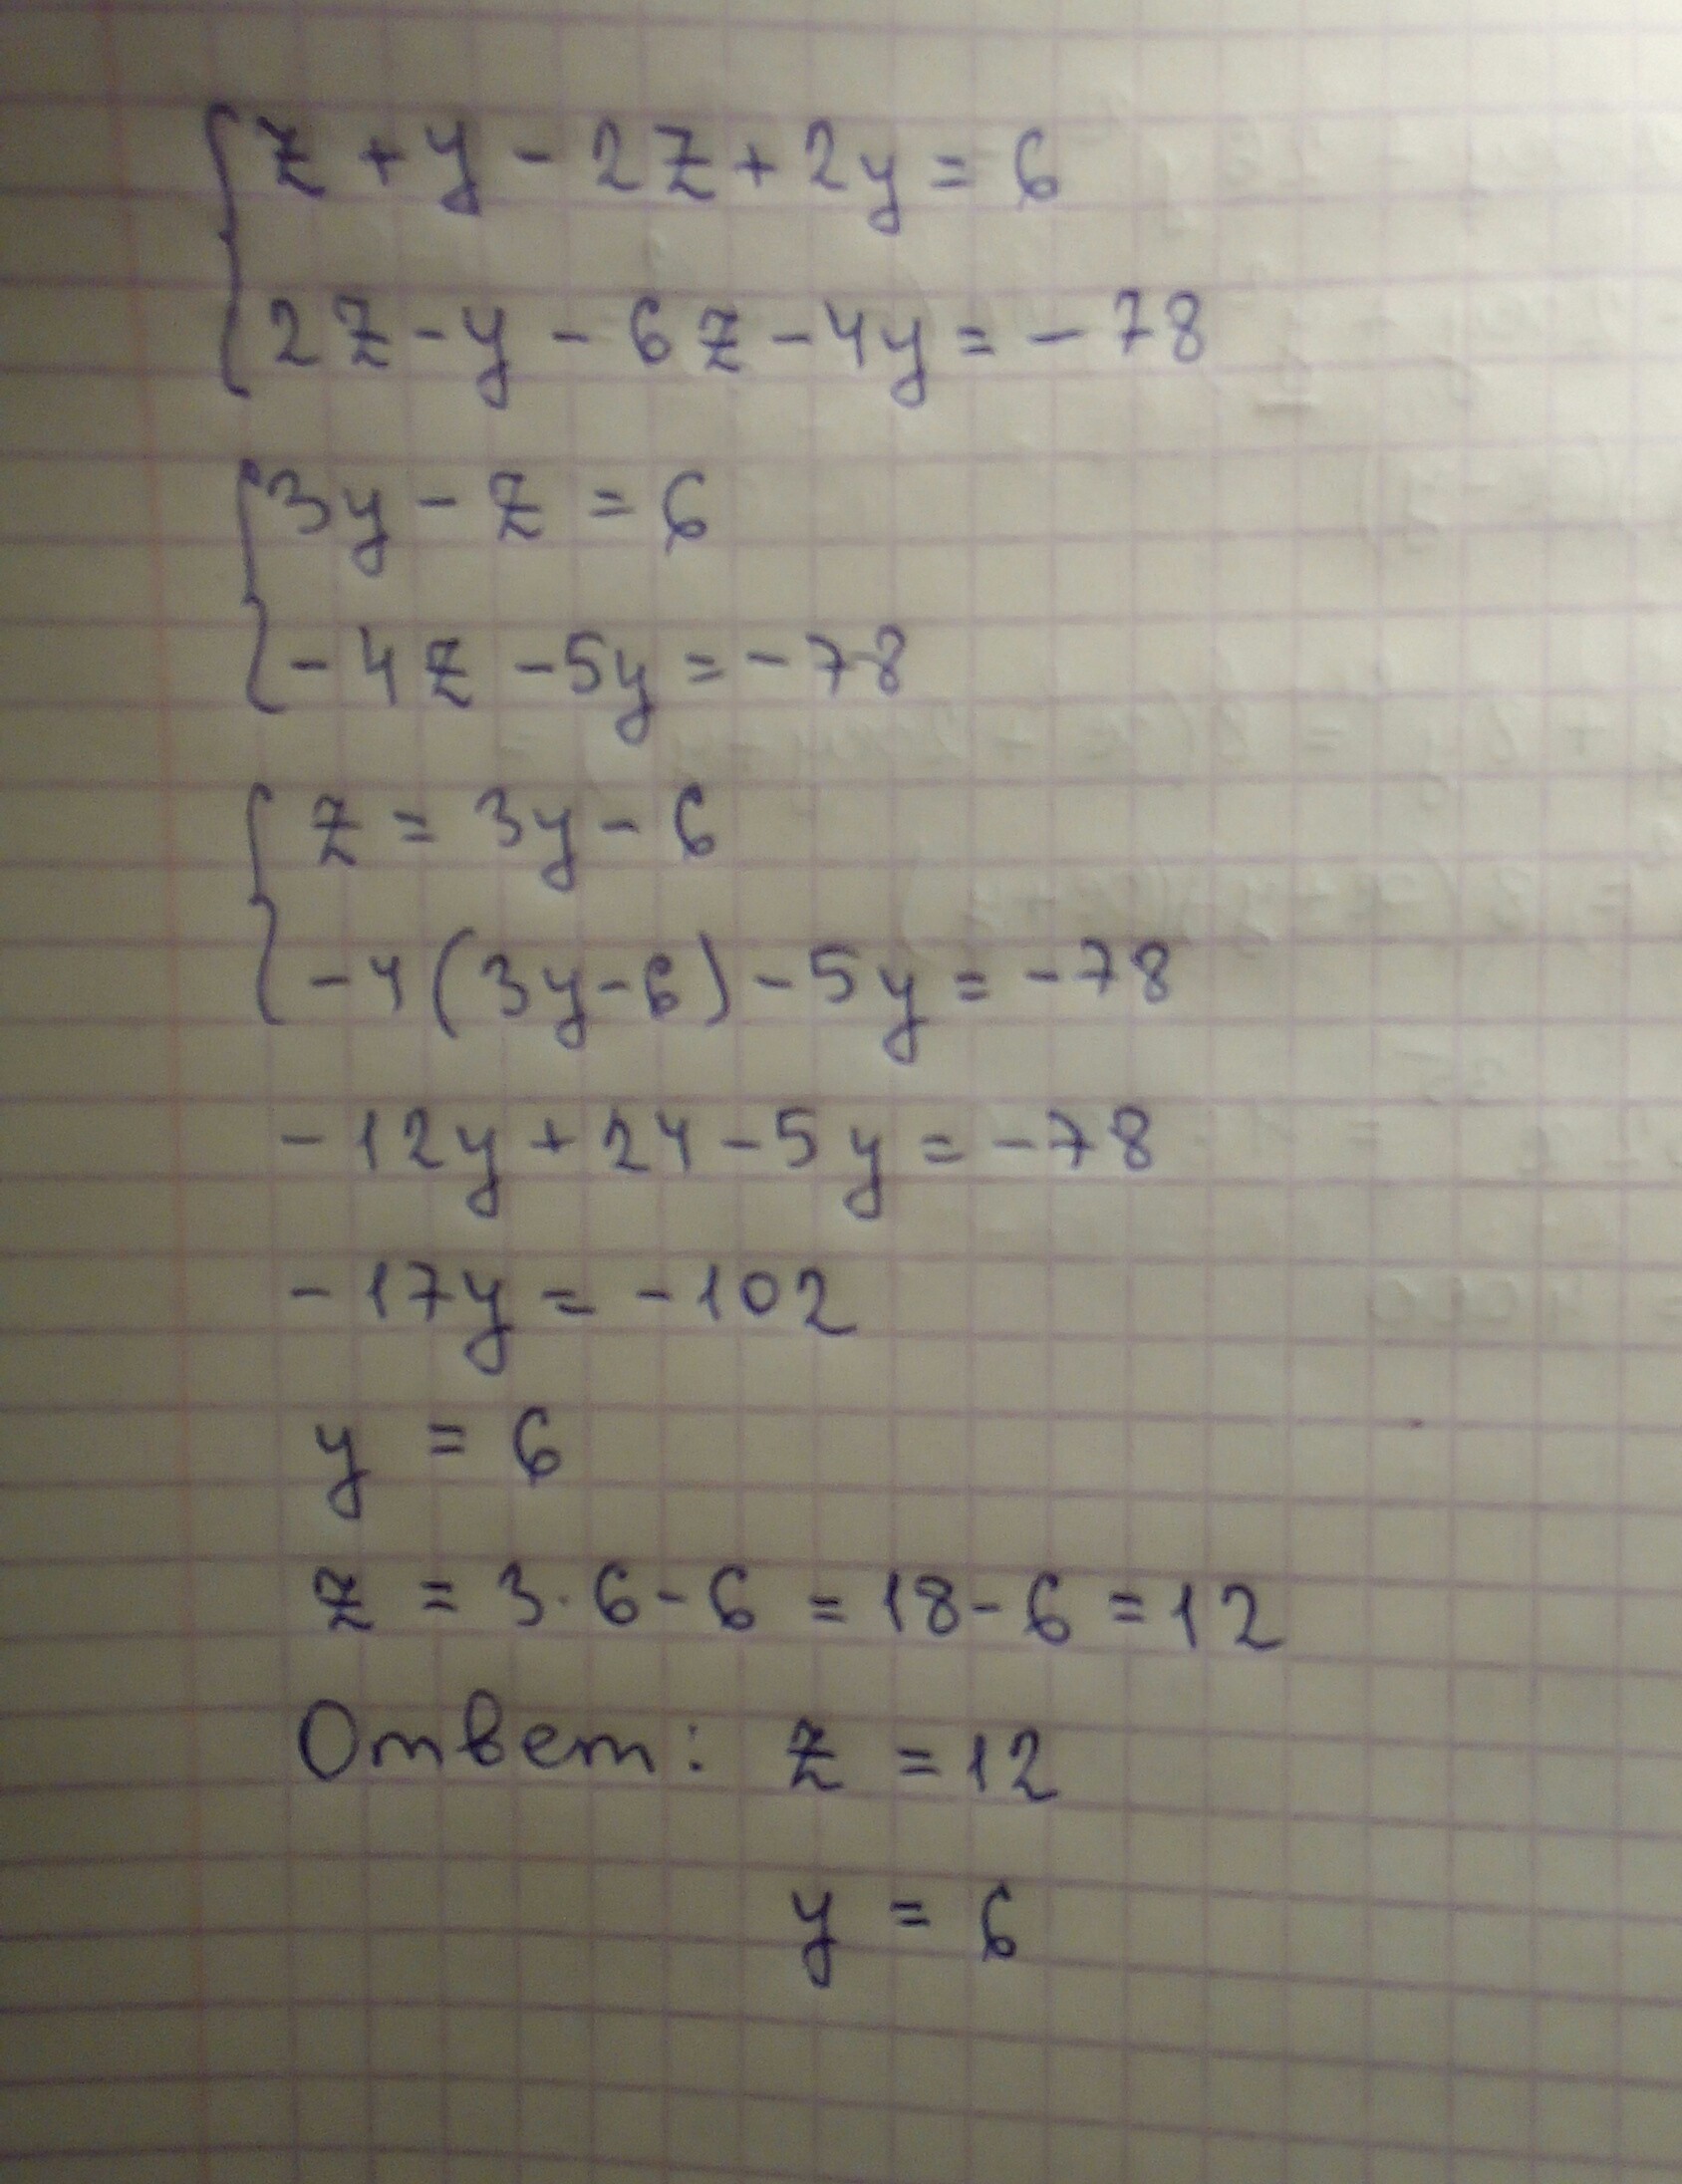 z + y - 2z + 2y = 6
2z - y - 6z - 4y = - 78
3y - z = 6
- 4z - 5y = - 78
z = 3y - 6
- 4 (3y - 6) - 5y = - 78
- 12y + 24 - 5y = - 78
- 17y = - 102
y = 6
z = 3 · 6 - 6 = 18 - 6 = 12
Ответ: z = 12
y = 6